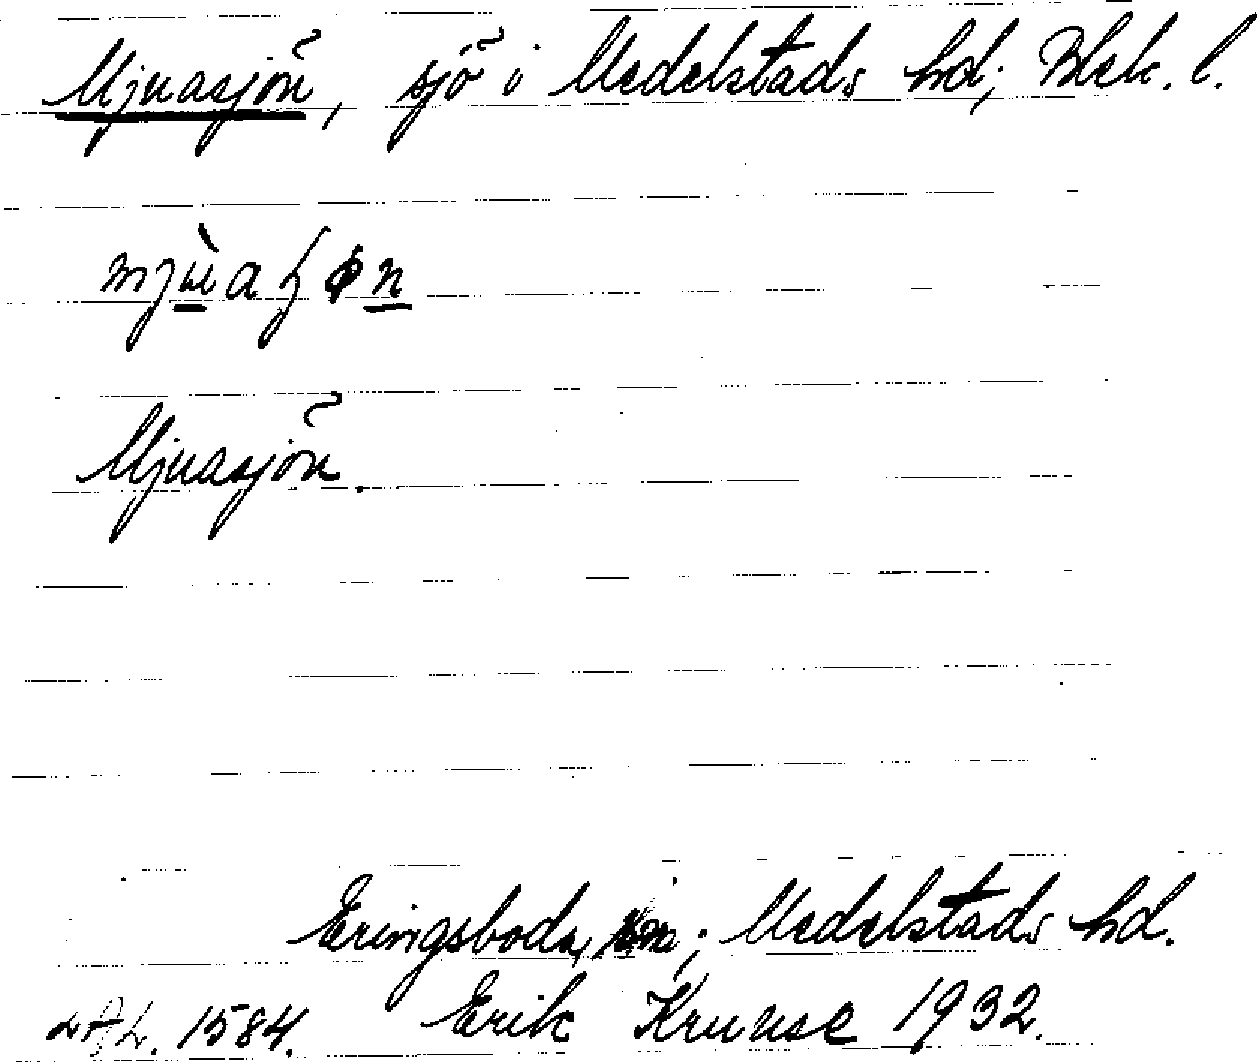 Mjuasjön, sjö i Medelstads hd; Blek. l.
Mjuasjön.
Eringsboda sn; Medelstads hd.
LAL. 1584. Erik Kruuse 1932.